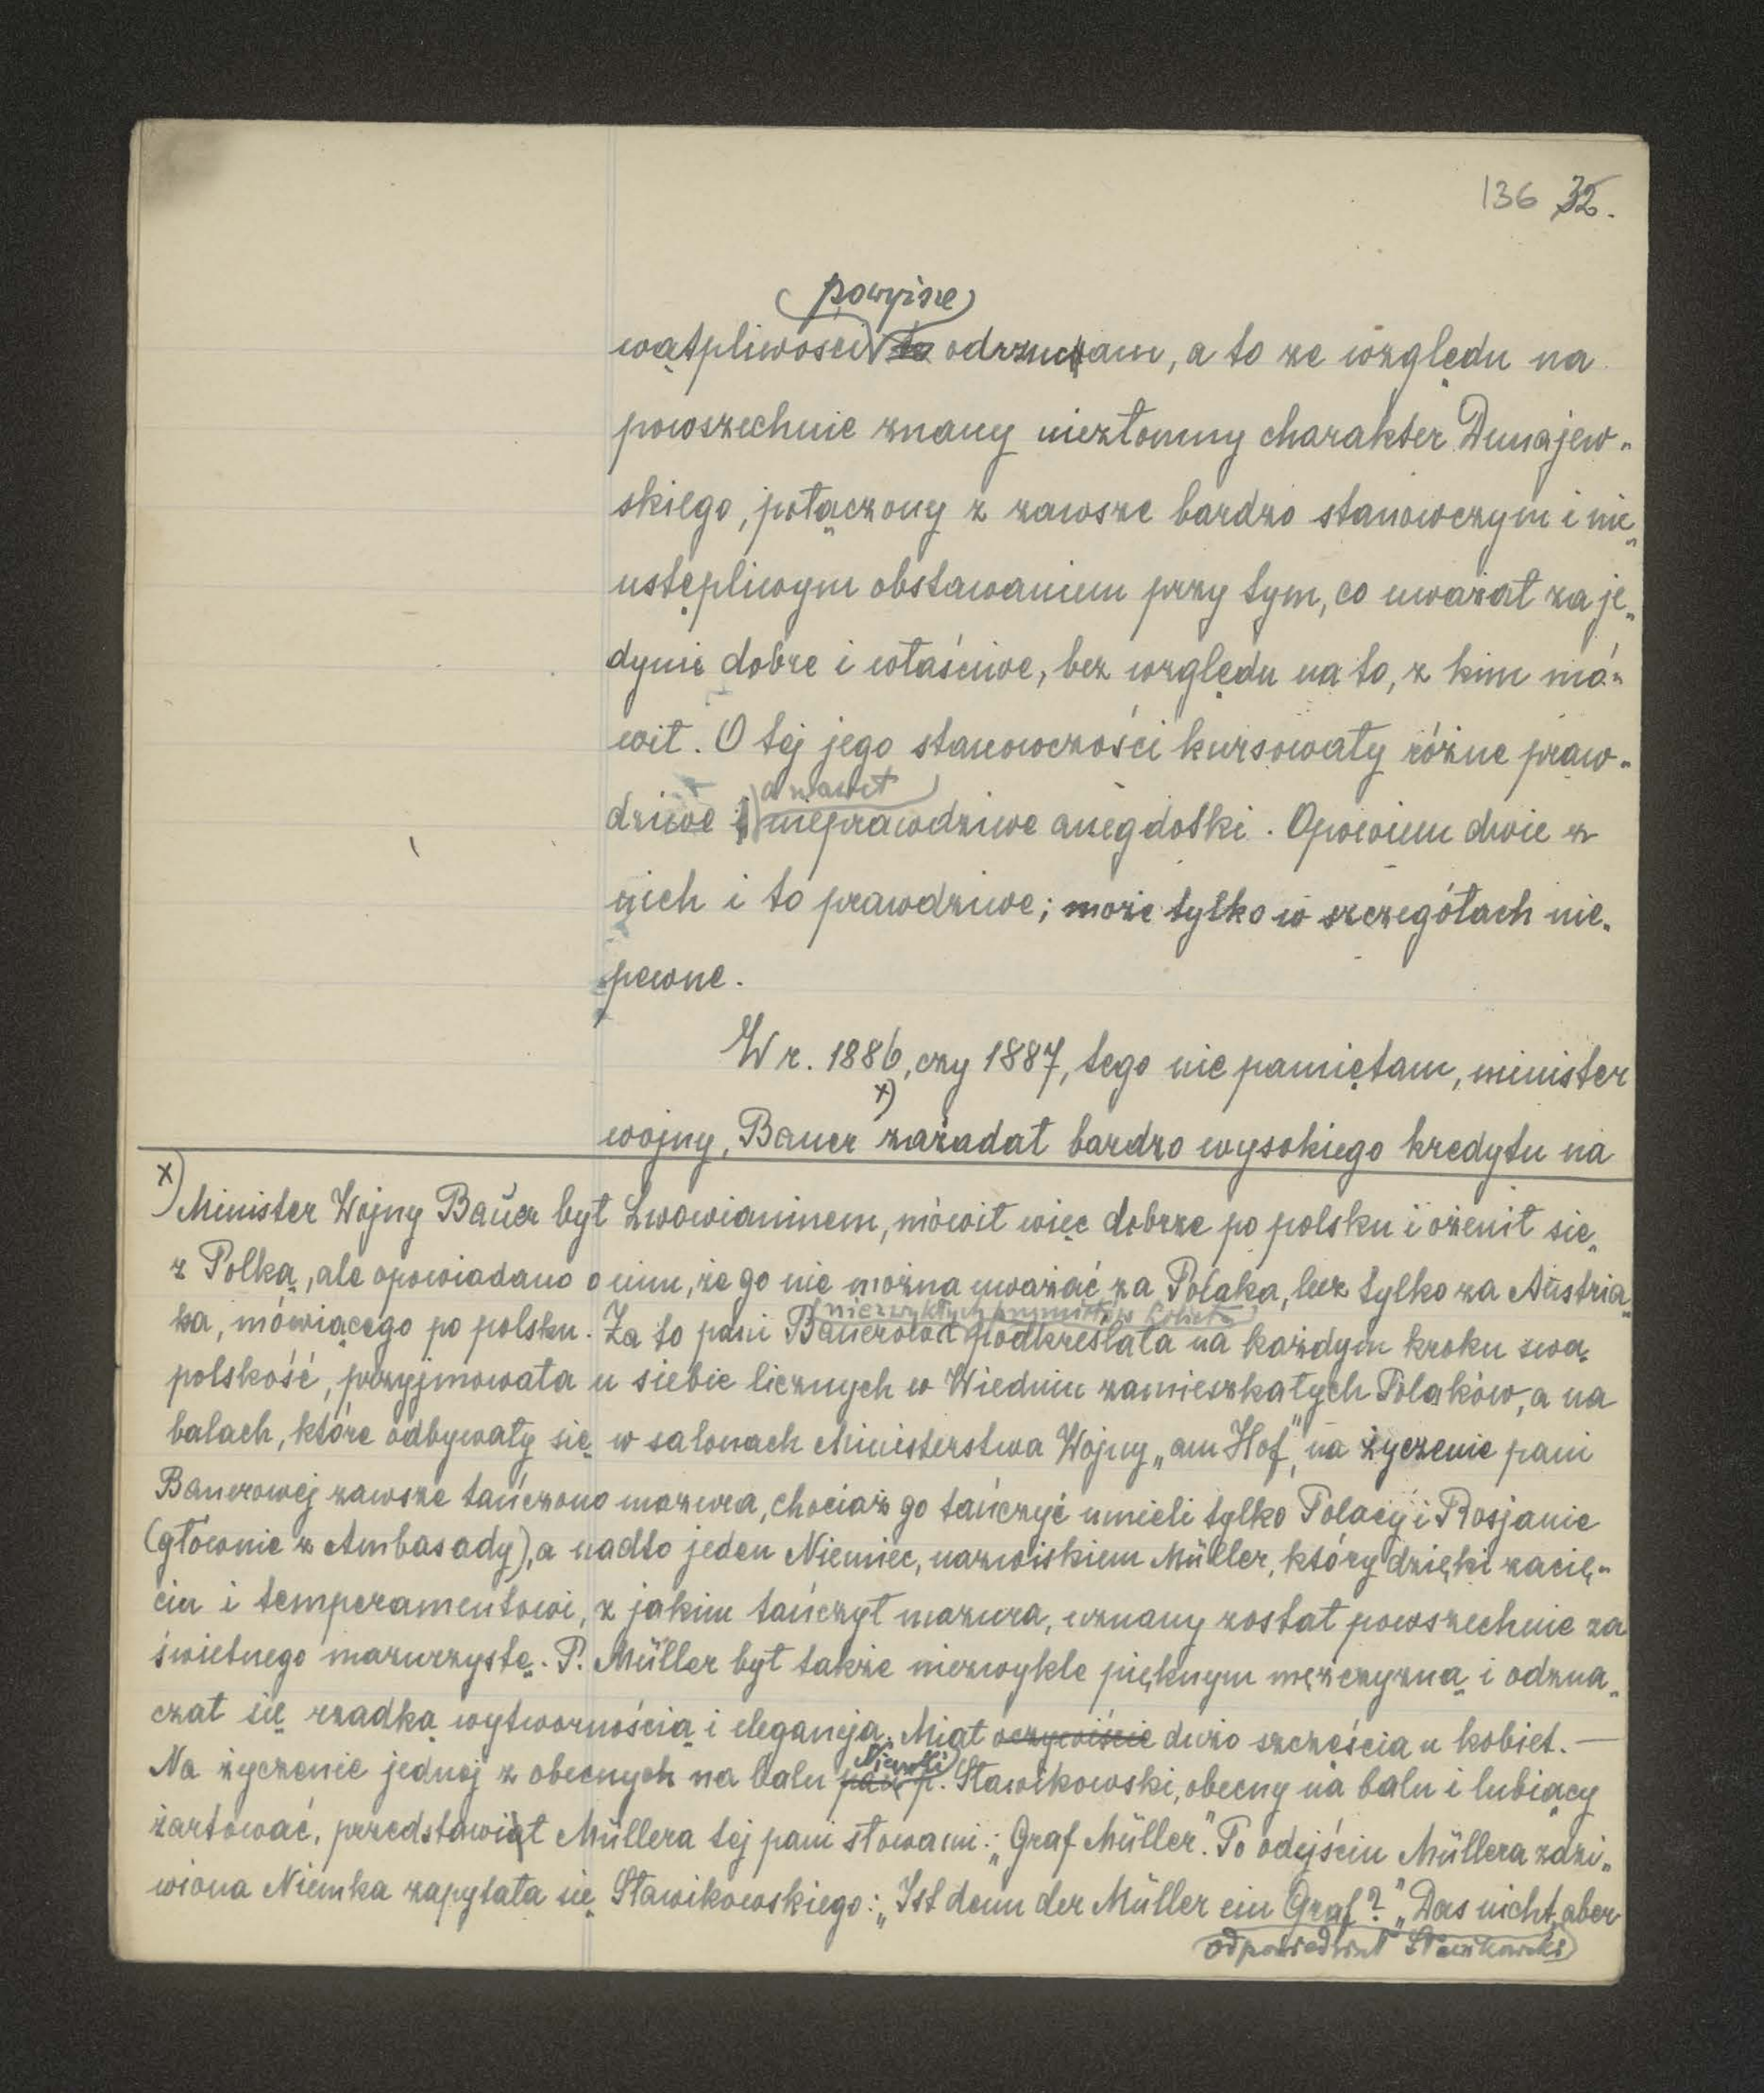 136 32.
powyższe
wątpliwości to odrzucam, a to ze względu na
powszechnie znany niezłomny charakter Dunajew-
skiego, połączony z zawsze bardzo stanowczym i nie-
ustępliwym obstawaniem przy tym, co uważał za je-
dynie dobre i właściwe, bez względu na to, z kim mó-
wił. O tej jego stanowczości kursowały różne praw-
a nawet
dziwe i nieprawdziwe anegdotki. Opowiem dwie z
nich i to prawdziwe; może tylko w szczegółach nie-
pewne.
W r. 1886, czy 1887, tego nie pamiętam, minister
wojny, Bauer x) zażądał bardzo wysokiego kredytu na
x) Minister Wojny Bauer był Lwowianinem, mówił więc dobrze po polsku i ożenił się
z Polką, ale opowiadano o nim, że go nie można uważać za Polaka, lecz tylko za Austria-
(niezwykłych przymiotów kobieta)
ka, mówiącego po polsku. Za to pani Bauerowa podkreślała na każdym kroku swą
polskość, przyjmowała u siebie licznych w Wiedniu zamieszkałych Polaków, a na
balach, które odbywały się w salonach Ministerstwa Wojny „am Hof", na życzenie pani
Bauerowej zawsze tańczono mazura, chociaż go tańczyć umieli tylko Polacy i Rosjanie
(głównie z Ambasady), a nadto jeden Niemiec, nazwiskiem Müller, który dzięki zacię-
ciu i temperamentowi, z jakim tańczył mazura, uznany został powszechnie za
świetnego mazurzystę. P. Müller był także niezwykle pięknym mężczyzną i odzna-
czał się rzadką wytwornością i elegancją. Miał oczywiście dużo szczęścia u kobiet. —
Niemki
Na życzenie jednej z obecnych na balu pań p. Sławikowski, obecny na balu i lubiący
żartować, przedstawiał Müllera tej pani słowami: „Graf Müller". Po odejściu Müllera zdzi-
wiona Niemka zapytała się Sławikowskiego: „Ist denn der Müller ein Graf?" „Das nicht, aber
odpowiedział Sławikowski